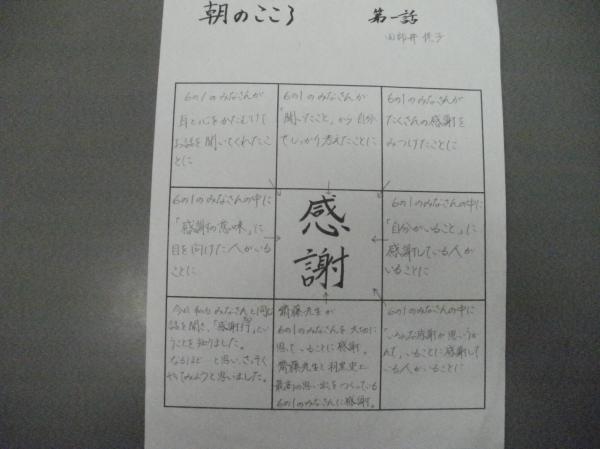 朝のこころ 第一話
6の1のみなさんが
耳と心をかたむけて
お話を聞いてくれたこ
とに
6の1のみなさんが
「聞いたこと」から自分
でしっかり考えたことに
6の1のみなさんが
たくさんの感謝を
みつけたことに
6の1のみなさんの中に
「感謝の意味」に
目を向けた人がいる
ことに
感謝
6の1のみなさんの中に
「自分がいること」に
感謝している人が
いることに
今日私もみなさんと同じ
話を聞き、「感謝行」とい
うことを知りました。
なるほど…と思い、さっそく
やってみようと思いました。
齋藤先生が
6の1のみなさんを大切に
思っていることに感謝。
齋藤先生と
最高の思い出をつくっている
6の1のみなさんに感謝。
6の1のみなさんの中に
「いろんな感謝が思いうか
んで」いることに感謝して
いる人がいることに